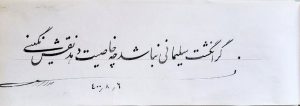 گر انگشت سلیمانی نباشد چه خاصیت دهد نقش نگینی
۴۰۰٫۸٫۶